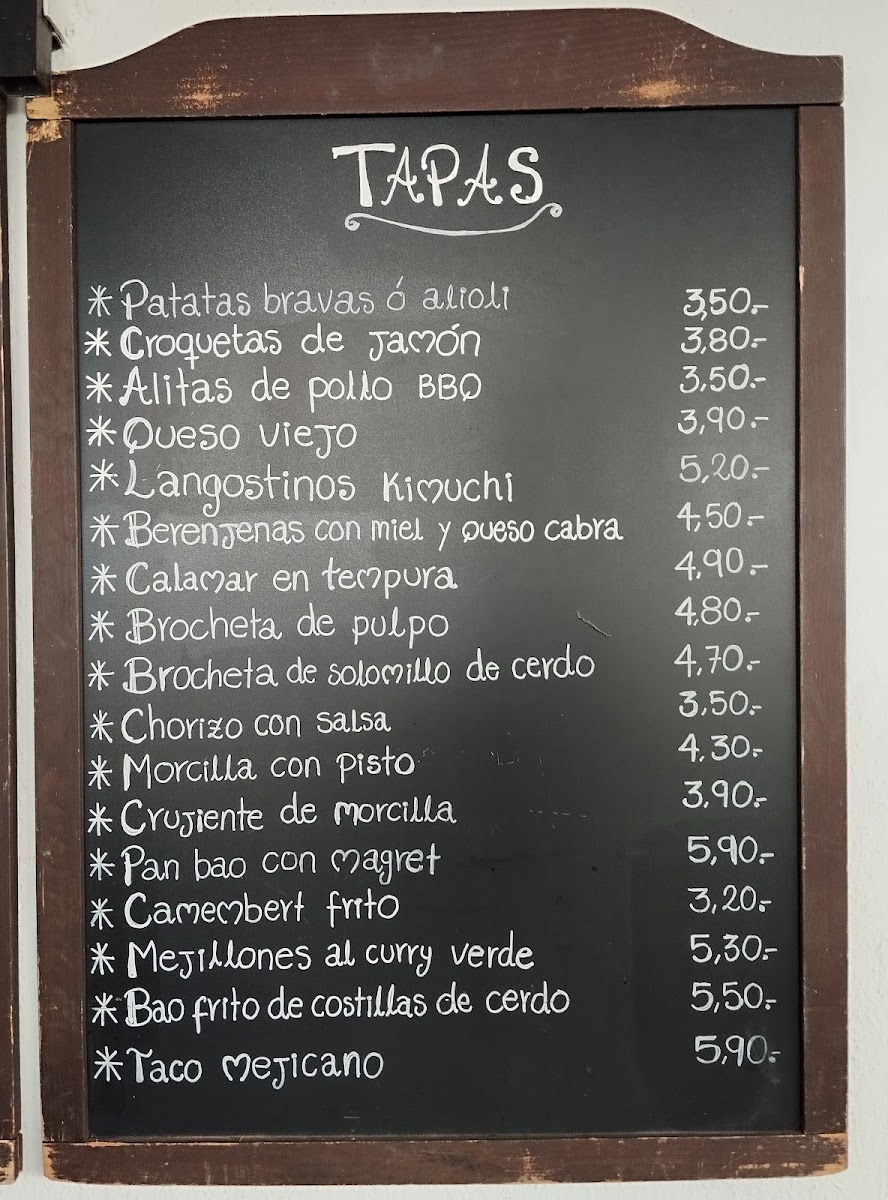 TAPAS
* Patatas bravas ó alioli 3,50.-
* Croquetas de jamón 3,80.-
* Alitas de pollo BBQ 3,50.-
* Queso viejo 3,90.-
* Langostinos Kimuchi 5,20.-
* Berenjenas con miel y queso cabra 4,50.-
* Calamar en tempura 4,90.-
* Brocheta de pulpo 4,80.-
* Brocheta de solomillo de cerdo 4,70.-
* Chorizo con salsa 3,50.-
* Morcilla con pisto 4,30.-
* Crujiente de morcilla 3,90.-
* Pan bao con magret 5,90.-
* Camembert frito 3,20.-
* Mejillones al curry verde 5,30.-
* Bao frito de costillas de cerdo 5,50.-
* Taco mejicano 5,90.-